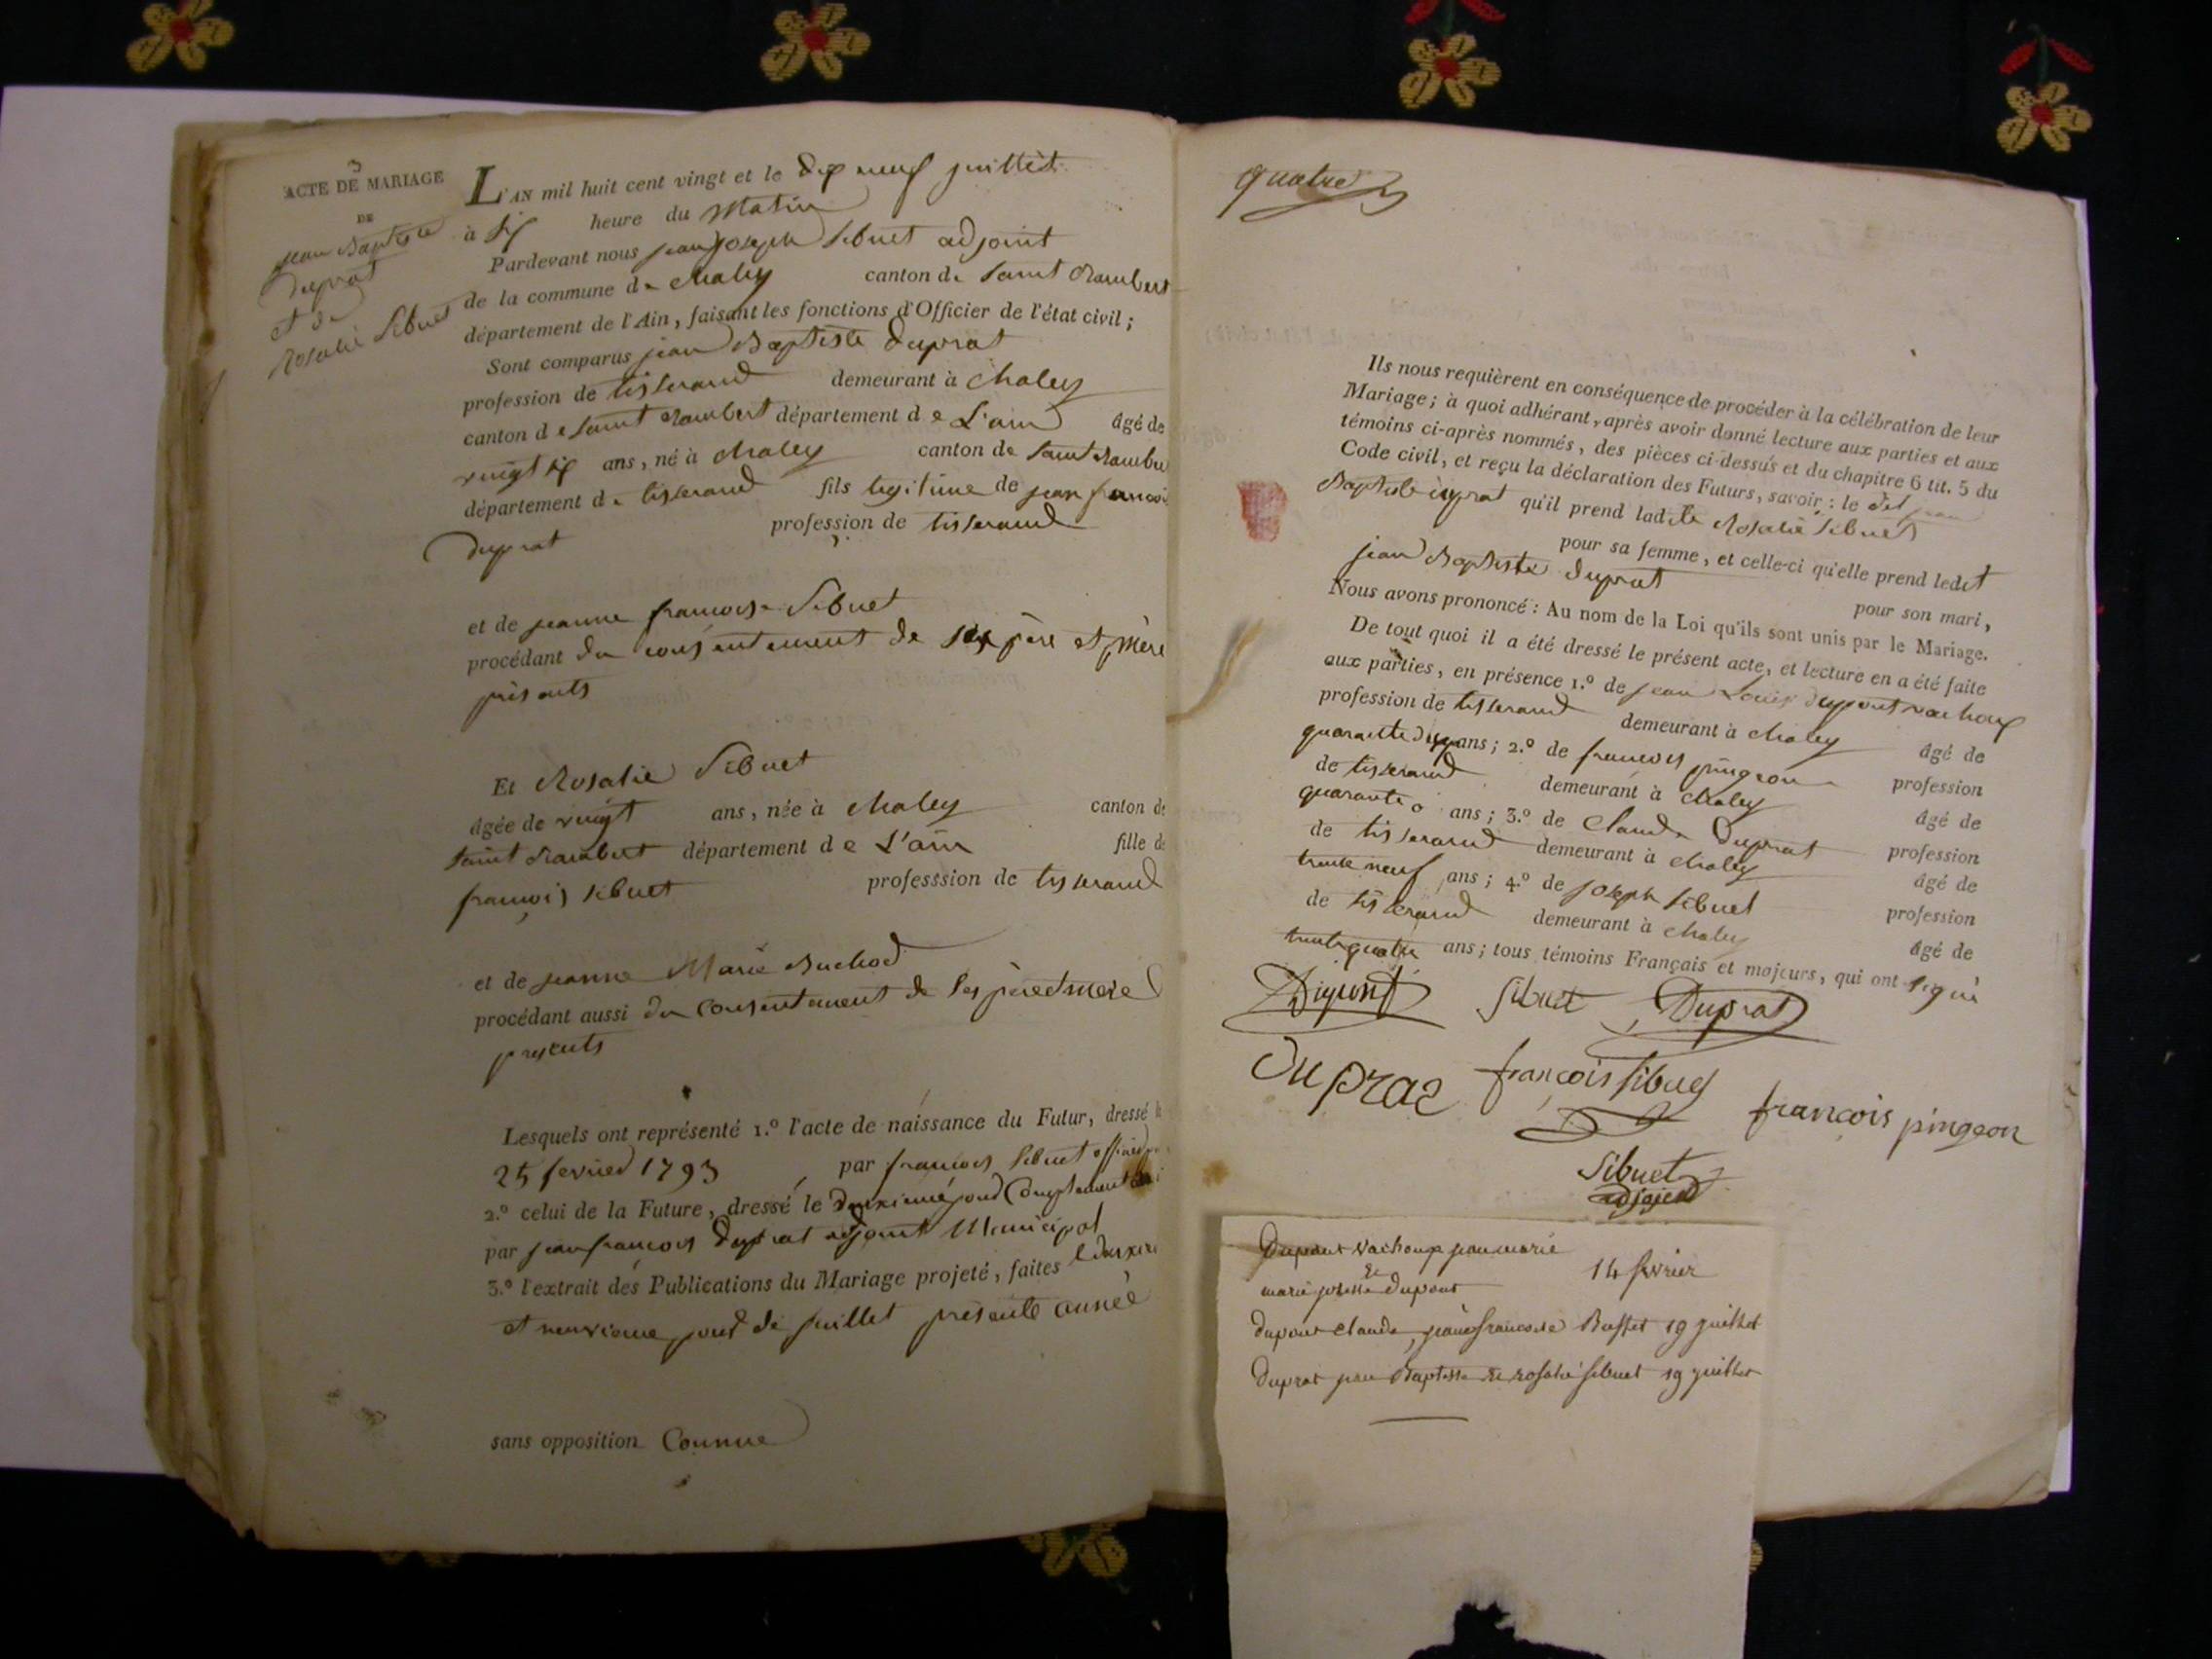 3
ACTE DE MARIAGE
DE
jean Baptiste
duprat
et de
Rosalie Sibuet
L'AN mil huit cent vingt et le dix neuf juillet
à six heure du matin
Pardevant nous jean joseph Sibuet adjoint
de la commune de chaley canton de saint Rambert
département de l'Ain, faisant les fonctions d'Officier de l'état civil;
Sont comparus jean Baptiste duprat
profession de tisserand demeurant à chaley
canton de saint Rambert département de L'ain âgé de
vingt six ans, né à chaley canton de saint Rambe
département de tisserand fils legitime de jean francoi
duprat profession de tisserand
et de jeanne francoise Sibuet
procédant du consentement de ses père et mère
présents
Et Rosalie Sibuet
âgée de vingt ans, née à chaley canton de
saint Rambert département de L'ain fille de
françois sibuet professsion de tisserand
et de jeanne Marie Buchod
procédant aussi du consentement de ses père et mere
presents
Lesquels ont représenté 1.º l'acte de naissance du Futur, dressé le
25 fevrier 1793 par françois sibuet officier
2.º celui de la Future, dressé le deuxieme jour Complementai
par jean francois duprat adjoint Municipal
3.º l'extrait des Publications du Mariage projeté, faites le deuxie
et neuvieme jour de juillet présente année
sans opposition Connue
quatre
Ils nous requièrent en conséquence de procéder à la célébration de leur
Mariage; à quoi adhérant, après avoir donné lecture aux parties et aux
témoins ci-après nommés, des pièces ci-dessus et du chapitre 6 tit. 5 du
Code civil, et reçu la déclaration des Futurs, savoir: le dit jean
Baptiste duprat qu'il prend ladite Rosalie Sibuet
pour sa femme, et celle-ci qu'elle prend ledit
jean Baptiste duprat pour son mari,
Nous avons prononcé: Au nom de la Loi qu'ils sont unis par le Mariage.
De tout quoi il a été dressé le présent acte, et lecture en a été faite
aux parties, en présence 1.º de jean Louis dupont vachoux
profession de tisserand demeurant à chaley âgé de
quarante ans; 2.º de francois pingeon profession
de tisserand demeurant à chaley âgé de
quarante ans; 3.º de Claude duprat profession
de tisserand demeurant à chaley âgé de
trente neuf ans; 4.º de joseph sibuet profession
de tisserand demeurant à chaley âgé de
trente quatre ans; tous témoins Français et majeurs, qui ont signé
Dupont Sibuet Duprat
Duprat françois sibuet francois pingeon
Sibuet
adjoint
Dupont vachoux jean marie
et 14 fevrier
marie josette dupont
dupont claude, jeane francoise Buffet 19 juillet
duprat jean Baptiste et rosalie sibuet 19 juillet